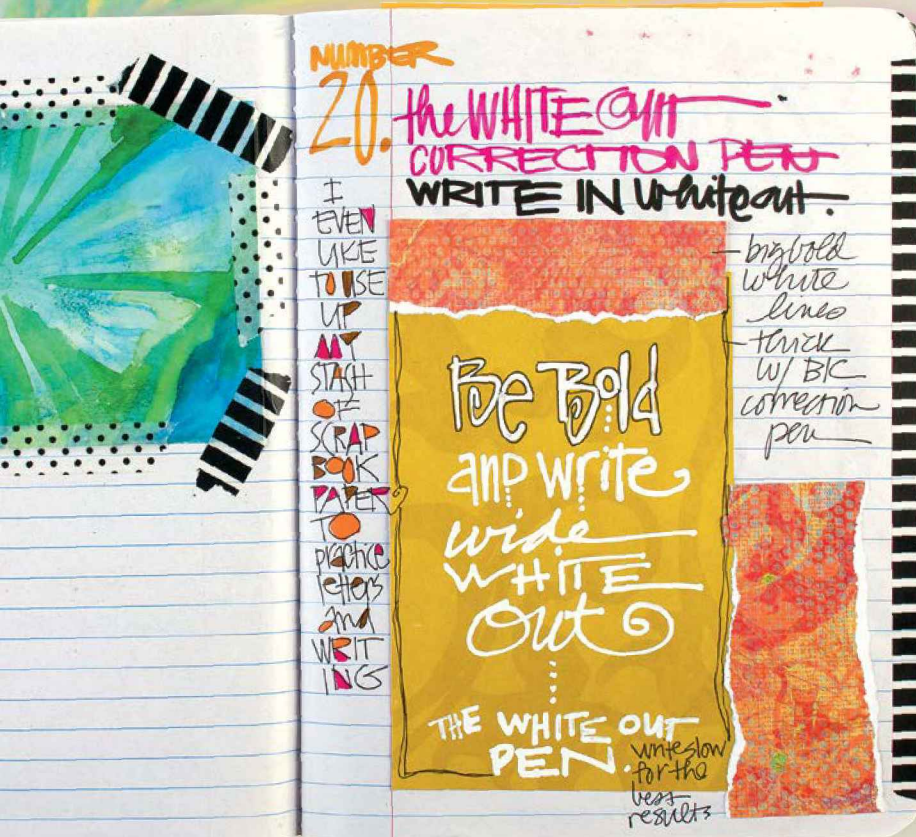 NUMBER
20.
the WHITE OUT
CORRECTION PEN
WRITE IN Whiteout.
I
EVEN
LIKE
TO USE
UP
MY
STASH
OF
SCRAP
BOOK
PAPER
TO
practice
letters
and
WRIT
ING
big bold
white
lines
thick
W/ BIC
correction
pen
Be Bold
and write
wide
WHITE
Out
THE WHITE OUT
PEN.
write slow
for the
best
results